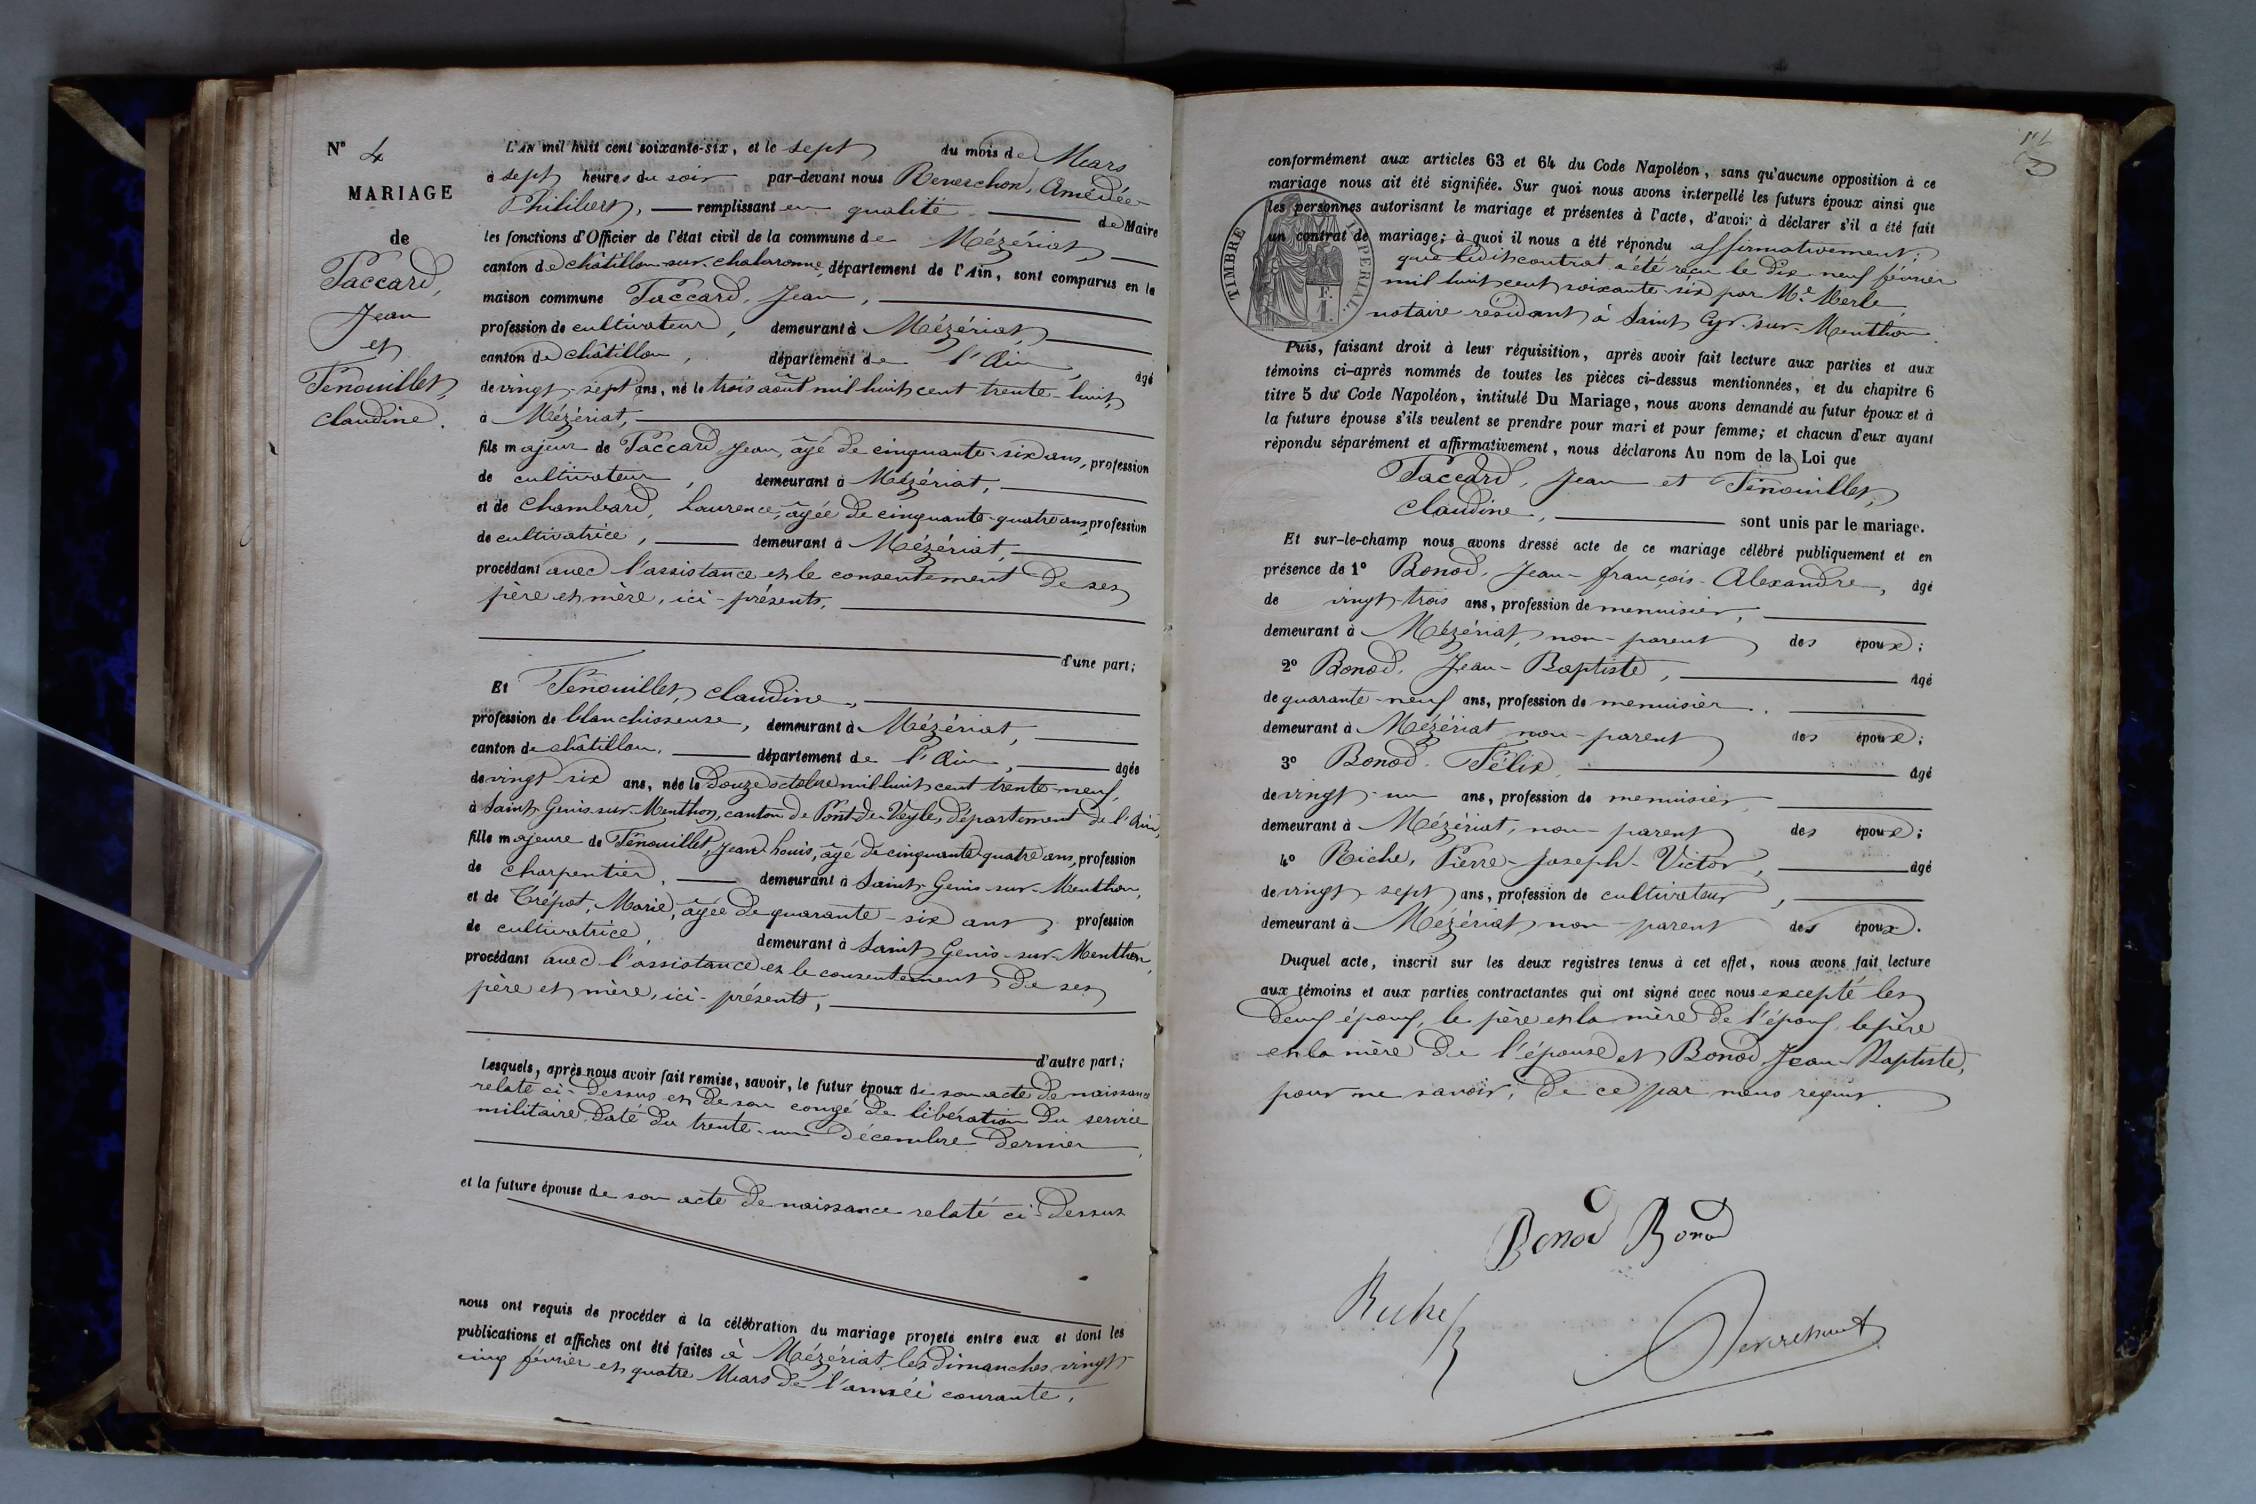 N° 4
MARIAGE
de
Paccard,
Jean
et
Fenouillet,
Claudine.
L'AN mil huit cent soixante-six, et le sept du mois de Mars
à sept heures du soir par-devant nous Reverchon, Amédée
Philibert, remplissant en qualité de Maire
les fonctions d'Officier de l'état civil de la commune de Mézériat,
canton de châtillon-sur-chalaronne, département de l'Ain, sont comparus en la
maison commune Paccard, Jean,
profession de cultivateur, demeurant à Mézériat,
canton de châtillon, département de l'Ain, âgé
de vingt-sept ans, né le trois août mil huit cent trente-huit,
à Mézériat,
fils majeur de Paccard, Jean, âgé de cinquante-six ans, profession
de cultivateur, demeurant à Mézériat,
et de Chambard, Laurence, âgée de cinquante-quatre ans, profession
de cultivatrice, demeurant à Mézériat,
procédant avec l'assistance et le consentement de ses
père et mère, ici-présents,
d'une part;
Et Fenouillet, Claudine,
profession de blanchisseuse, demeurant à Mézériat,
canton de châtillon, département de l'Ain, âgée
de vingt-six ans, née le douze octobre mil huit cent trente-neuf,
à Saint-Genis-sur-Menthon, canton de Pont-de-Veyle, département de l'Ain,
fille majeure de Fenouillet, Jean-Louis, âgé de cinquante-quatre ans, profession
de charpentier, demeurant à Saint-Genis-sur-Menthon,
et de Trépot, Marie, âgée de quarante-six ans, profession
de cultivatrice, demeurant à Saint-Genis-sur-Menthon,
procédant avec l'assistance et le consentement de ses
père et mère, ici-présents,
d'autre part;
Lesquels, après nous avoir fait remise, savoir, le futur époux de son acte de naissance
relaté ci-dessus et de son congé de libération du service
militaire daté du trente-un décembre dernier
et la future épouse de son acte de naissance relaté ci-dessus
nous ont requis de procéder à la célébration du mariage projeté entre eux et dont les
publications et affiches ont été faites à Mézériat, les dimanches vingt-
cinq février et quatre Mars de l'année courante,
conformément aux articles 63 et 64 du Code Napoléon, sans qu'aucune opposition à ce
mariage nous ait été signifiée. Sur quoi nous avons interpellé les futurs époux ainsi que
les personnes autorisant le mariage et présentes à l'acte, d'avoir à déclarer s'il a été fait
un contrat de mariage; à quoi il nous a été répondu affirmativement;
que ledit contrat a été reçu le dix-neuf février
mil huit cent soixante-six par Me Merle
notaire résidant à Saint Cyr-sur-Menthon.
TIMBRE IMPERIAL.
F.
1
Puis, faisant droit à leur réquisition, après avoir fait lecture aux parties et aux
témoins ci-après nommés de toutes les pièces ci-dessus mentionnées, et du chapitre 6
titre 5 du Code Napoléon, intitulé Du Mariage, nous avons demandé au futur époux et à
la future épouse s'ils veulent se prendre pour mari et pour femme; et chacun d'eux ayant
répondu séparément et affirmativement, nous déclarons Au nom de la Loi que
Paccard, Jean et Fenouillet,
Claudine, sont unis par le mariage.
Et sur-le-champ nous avons dressé acte de ce mariage célébré publiquement et en
présence de 1° Bonod, Jean-François-Alexandre, âgé
de vingt-trois ans, profession de menuisier,
demeurant à Mézériat, non-parent des époux;
2° Bonod, Jean-Baptiste, âgé
de quarante-neuf ans, profession de menuisier.
demeurant à Mézériat non-parent des époux;
3° Bonod, Félix, âgé
de vingt-un ans, profession de menuisier
demeurant à Mézériat, non-parent des époux;
4° Riche, Pierre-Joseph-Victor, âgé
de vingt-sept ans, profession de cultivateur,
demeurant à Mézériat non-parent des époux.
Duquel acte, inscrit sur les deux registres tenus à cet effet, nous avons fait lecture
aux témoins et aux parties contractantes qui ont signé avec nous excepté les
deux époux, le père et la mère de l'époux, le père
et la mère de l'épouse et Bonod Jean-Baptiste,
pour ne savoir, de ce par nous requis.
Bonod Bonod
Riche
Reverchon